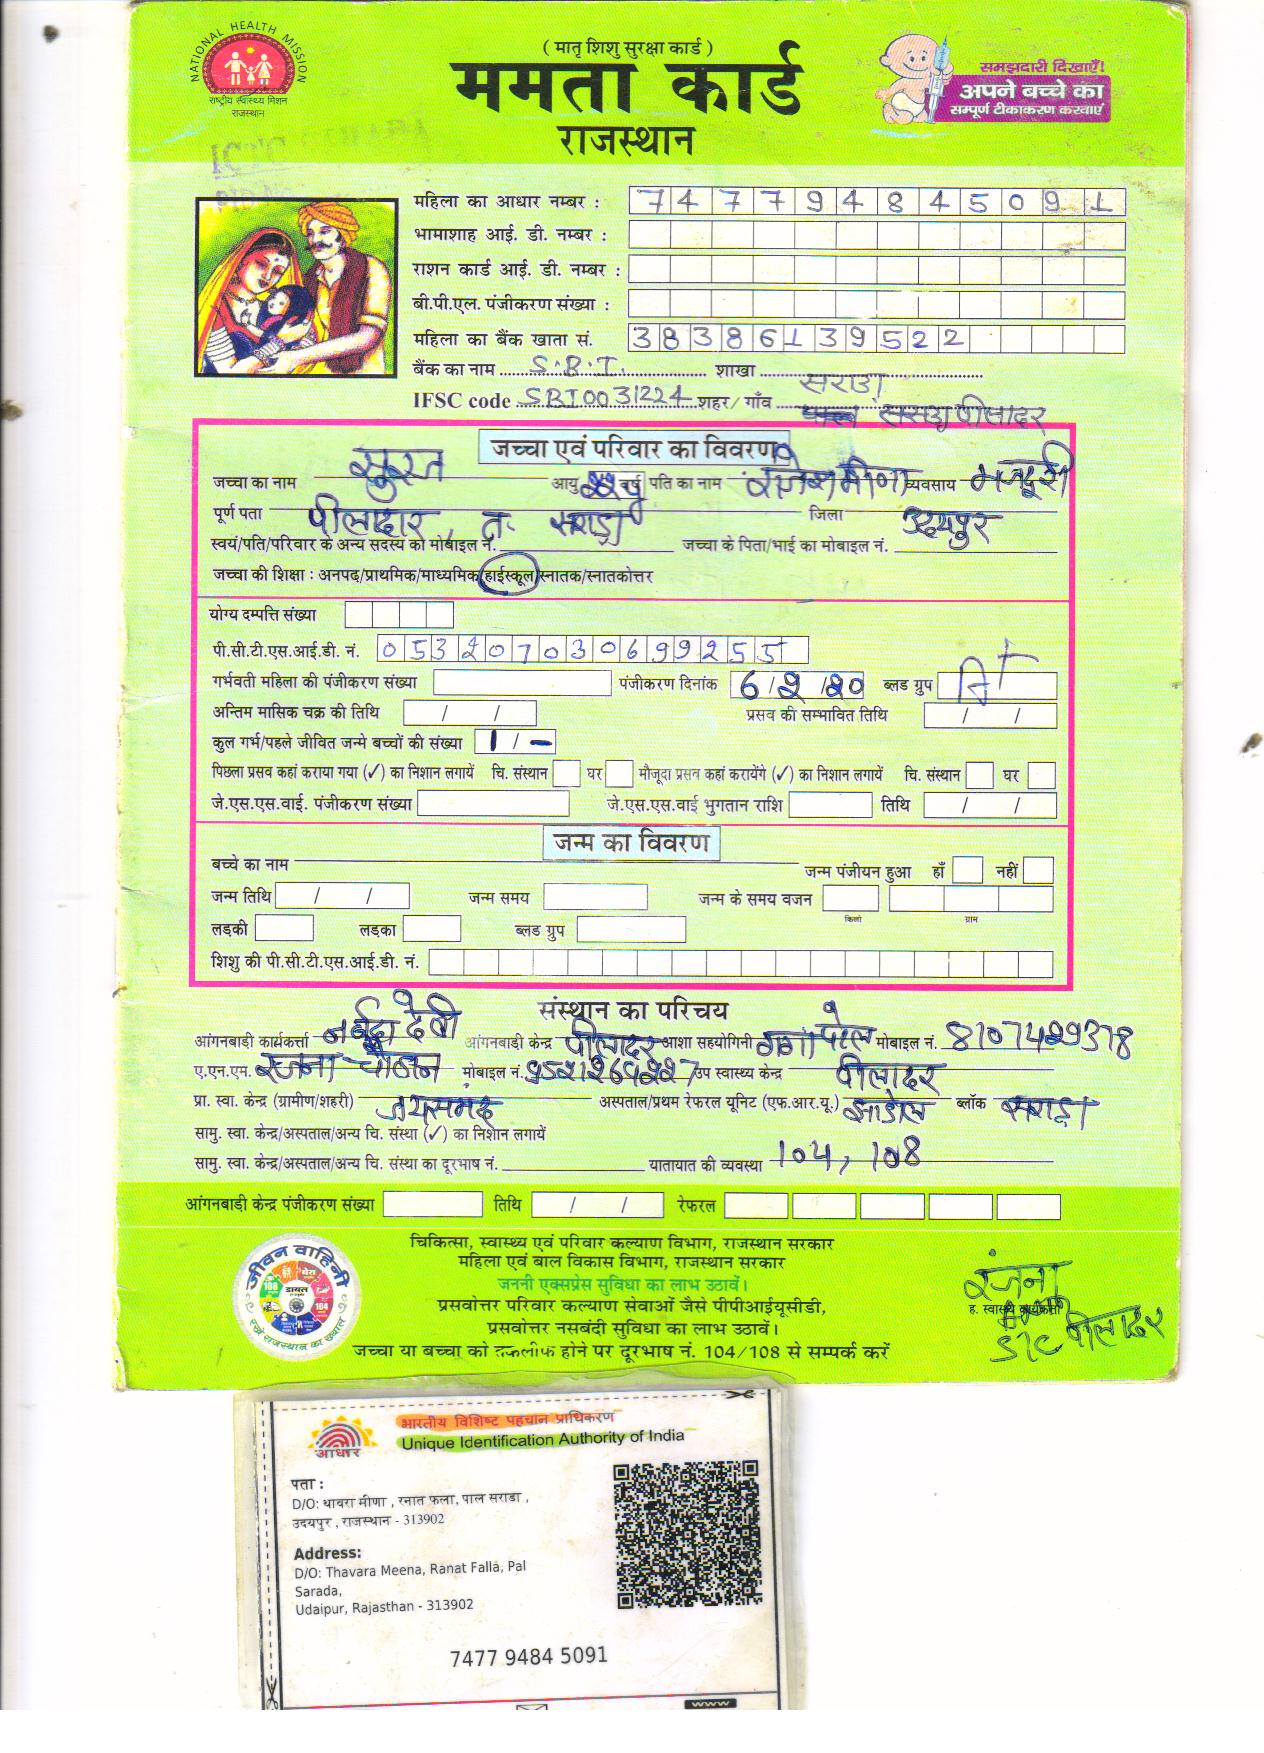 NATIONAL HEALTH MISSION
राष्ट्रीय स्वास्थ्य मिशन
राजस्थान
( मातृ शिशु सुरक्षा कार्ड )
ममता कार्ड
राजस्थान
समझदारी दिखाएँ!
अपने बच्चे का
सम्पूर्ण टीकाकरण करवाएं
महिला का आधार नम्बर : 747794845091
भामाशाह आई. डी. नम्बर :
राशन कार्ड आई. डी. नम्बर :
बी.पी.एल. पंजीकरण संख्या :
महिला का बैंक खाता सं. 38386139522
बैंक का नाम S.B.I. शाखा सराडा
IFSC code SBI0031224 शहर/ गाँव पीलादर
जच्चा एवं परिवार का विवरण
जच्चा का नाम सुरज आयु वर्ष पति का नाम राजेश मीणा व्यवसाय मजदूरी
पूर्ण पता पीलादार, त- सराडा जिला उदयपुर
स्वयं/पति/परिवार के अन्य सदस्य का मोबाइल नं. जच्चा के पिता/भाई का मोबाइल नं.
जच्चा की शिक्षा : अनपढ/प्राथमिक/माध्यमिक/हाईस्कूल/स्नातक/स्नातकोत्तर
योग्य दम्पत्ति संख्या
पी.सी.टी.एस.आई.डी. नं. 053207030699255
गर्भवती महिला की पंजीकरण संख्या पंजीकरण दिनांक 6/2/20 ब्लड ग्रुप A+
अन्तिम मासिक चक्र की तिथि / / प्रसव की सम्भावित तिथि / /
कुल गर्भ/पहले जीवित जन्मे बच्चों की संख्या 1/-
पिछला प्रसव कहां कराया गया (✓) का निशान लगायें चि. संस्थान घर मौजूदा प्रसव कहां करायेंगे (✓) का निशान लगायें चि. संस्थान घर
जे.एस.एस.वाई. पंजीकरण संख्या जे.एस.एस.वाई भुगतान राशि तिथि / /
जन्म का विवरण
बच्चे का नाम जन्म पंजीयन हुआ हाँ नहीं
जन्म तिथि / / जन्म समय जन्म के समय वजन
किलो ग्राम
लड़की लडका ब्लड ग्रुप
शिशु की पी.सी.टी.एस.आई.डी. नं.
संस्थान का परिचय
आंगनबाड़ी कार्यकर्त्ता नर्बदा देवी आंगनबाडी केन्द्र पीलादर आशा सहयोगिनी गंगा पटेल मोबाइल नं. 8107429378
ए.एन.एम. रंजना चौहान मोबाइल नं. उप स्वास्थ्य केन्द्र पीलादर
प्रा. स्वा. केन्द्र (ग्रामीण/शहरी) जयसमंद अस्पताल/प्रथम रेफरल यूनिट (एफ.आर.यू.) झाडोल ब्लॉक सराडा
सामु. स्वा. केन्द्र/अस्पताल/अन्य चि. संस्था (✓) का निशान लगायें
सामु. स्वा. केन्द्र/अस्पताल/अन्य चि. संस्था का दूरभाष नं. यातायात की व्यवस्था 104, 108
आंगनबाड़ी केन्द्र पंजीकरण संख्या तिथि / / रेफरल
जीवन वाहिनी
108 डायल 104
रखे राजस्थान का ख्याल
चिकित्सा, स्वास्थ्य एवं परिवार कल्याण विभाग, राजस्थान सरकार
महिला एवं बाल विकास विभाग, राजस्थान सरकार
जननी एक्सप्रेस सुविधा का लाभ उठावें।
प्रसवोत्तर परिवार कल्याण सेवाओं जैसे पीपीआईयूसीडी,
प्रसवोत्तर नसबंदी सुविधा का लाभ उठावें।
जच्चा या बच्चा को तकलीफ होने पर दूरभाष नं. 104/108 से सम्पर्क करें
रंजना
ह. स्वास्थ्य कार्यकर्ता
S/C पीलादर
आधार
भारतीय विशिष्ट पहचान प्राधिकरण
Unique Identification Authority of India
पता :
D/O: थावरा मीणा , रनात फला, पाल सराडा ,
उदयपुर , राजस्थान - 313902
Address:
D/O: Thavara Meena, Ranat Falla, Pal
Sarada,
Udaipur, Rajasthan - 313902
7477 9484 5091
www